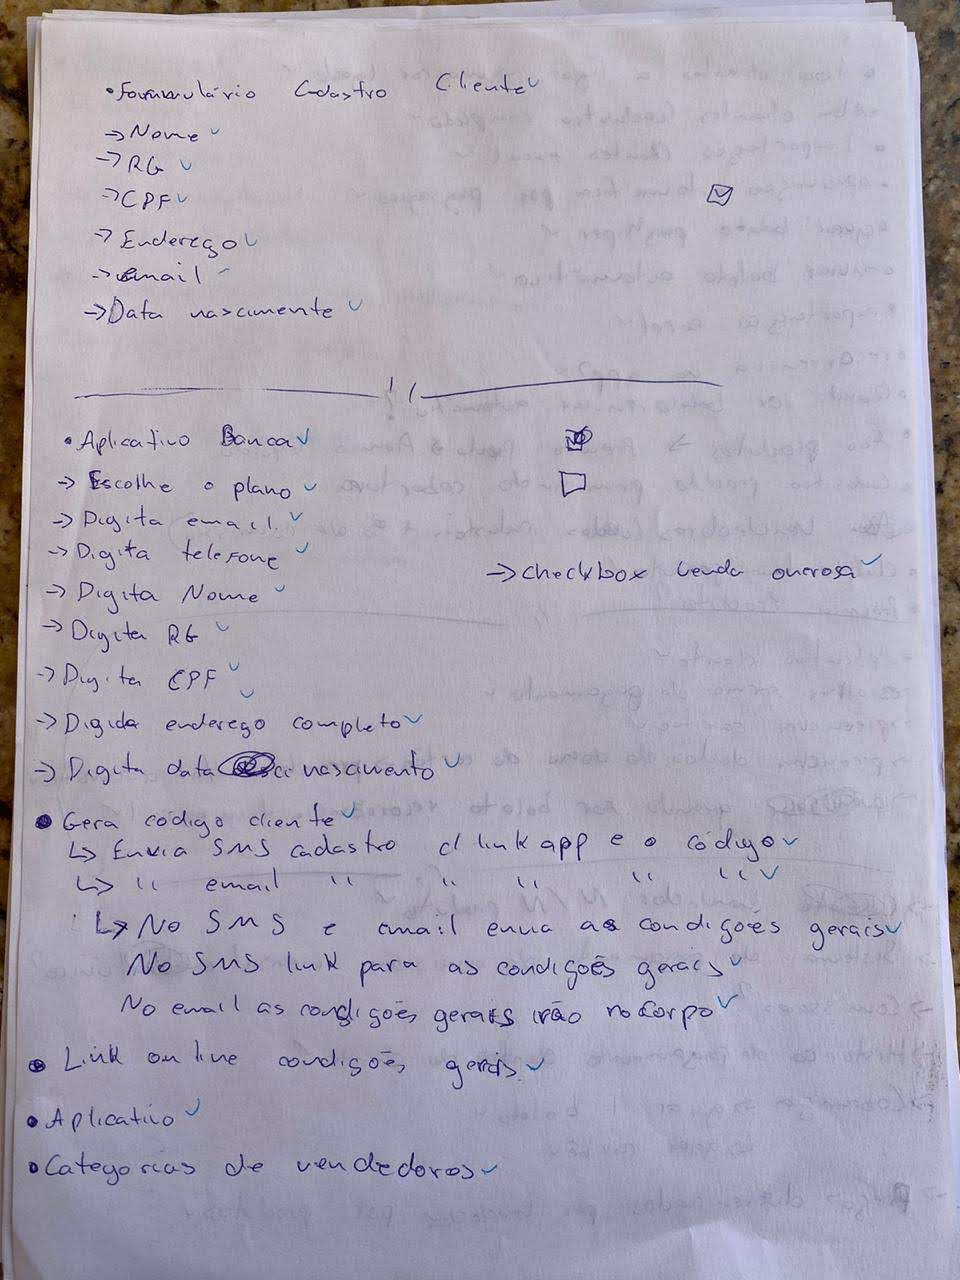 • Formulário Cadastro Cliente ✓
→ Nome ✓
→ RG ✓
→ CPF ✓
→ Endereço ✓
→ email ✓
→ Data nascimente ✓
• Aplicativo Banca ✓
→ Escolhe o plano ✓
→ Digita email. ✓
→ Digita telefone ✓
→ checkbox venda onerosa ✓
→ Digita Nome ✓
→ Digita RG ✓
→ Digita CPF ✓
→ Digida endereço completo ✓
→ Digita data nascimento ✓
• Gera código cliente ✓
↳ Envia SMS cadastro c/ link app e o código ✓
↳ '' email '' '' '' '' '' ✓
↳ No SMS e email envia as condições gerais ✓
No SMS link para as condições gerais ✓
No email as condições gerais irão no corpo ✓
• Link on line condições gerais. ✓
• Aplicativo ✓
• Categorias de vendedores ✓